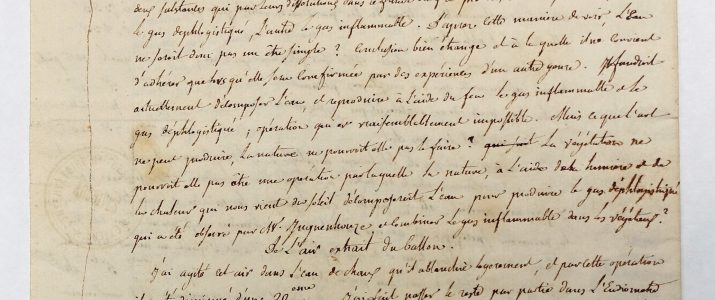 deux substances qui par leurs dissolutions dans le
le gas déphlogistiqué, l'autre le gas inflammable. D'après cette manière de voir, L'Eau
ne seroit donc pas un être simple? Conclusion bien étrange et à la quelle il ne convient
d'adhérer que lorsqu'elle sera comfirmée par des expériences d'un autre genre. Il faudroit
actuellement décomposer L'Eau, et reproduire à l'aide du feu le gas inflammable et le
gas déphlogistiqué; opération qui est vraisemblablement impossible. Mais ce que l'art
ne peut produire, la nature ne pourroit elle pas le faire? qui fait La végétation ne
pourroit elle pas être une operation par laquelle la nature, à l'aide de la lumière et de
la chaleur qui nous vient du soleil décomposeroit L'Eau pour produire le gas déphlogistiqué
qui a été observé par Mr. Inguenhouze, et combiner le gas inflammable dans les végétaux?
De L'air extrait du ballon.
J'ai agité cet air dans L'Eau de chaux qu'il a blanchie legerement, et par cette opération
il a été diminué d'une 20eme J'ai fait passer le reste par partie dans L'Eudiometre